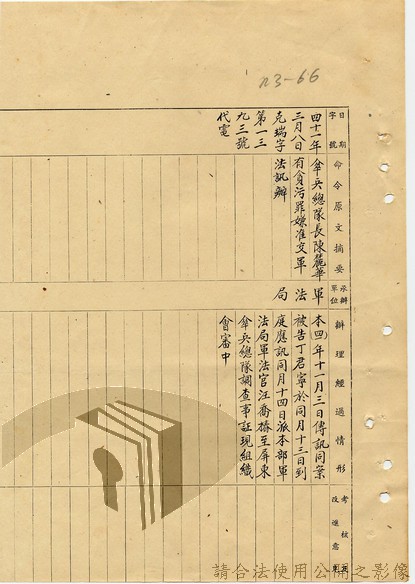 n3-66
日期
字號
命令原文摘要
承辦單位
辦理經過情形
考核及
改進意見
四十一年
三月八日
克瑞字
第一三
九三號
代電
傘兵總隊長陳麓華
有貪污罪嫌准交軍
法訊辦
軍法局
本(四)年十一月三日傳訊同案
被告丁君寧於同月十三日到
庭應訊同月十四日派本部軍
法局軍法官汪喬椿至屏東
傘兵總隊調查事証現組織
會審中
請合法使用公開之影像